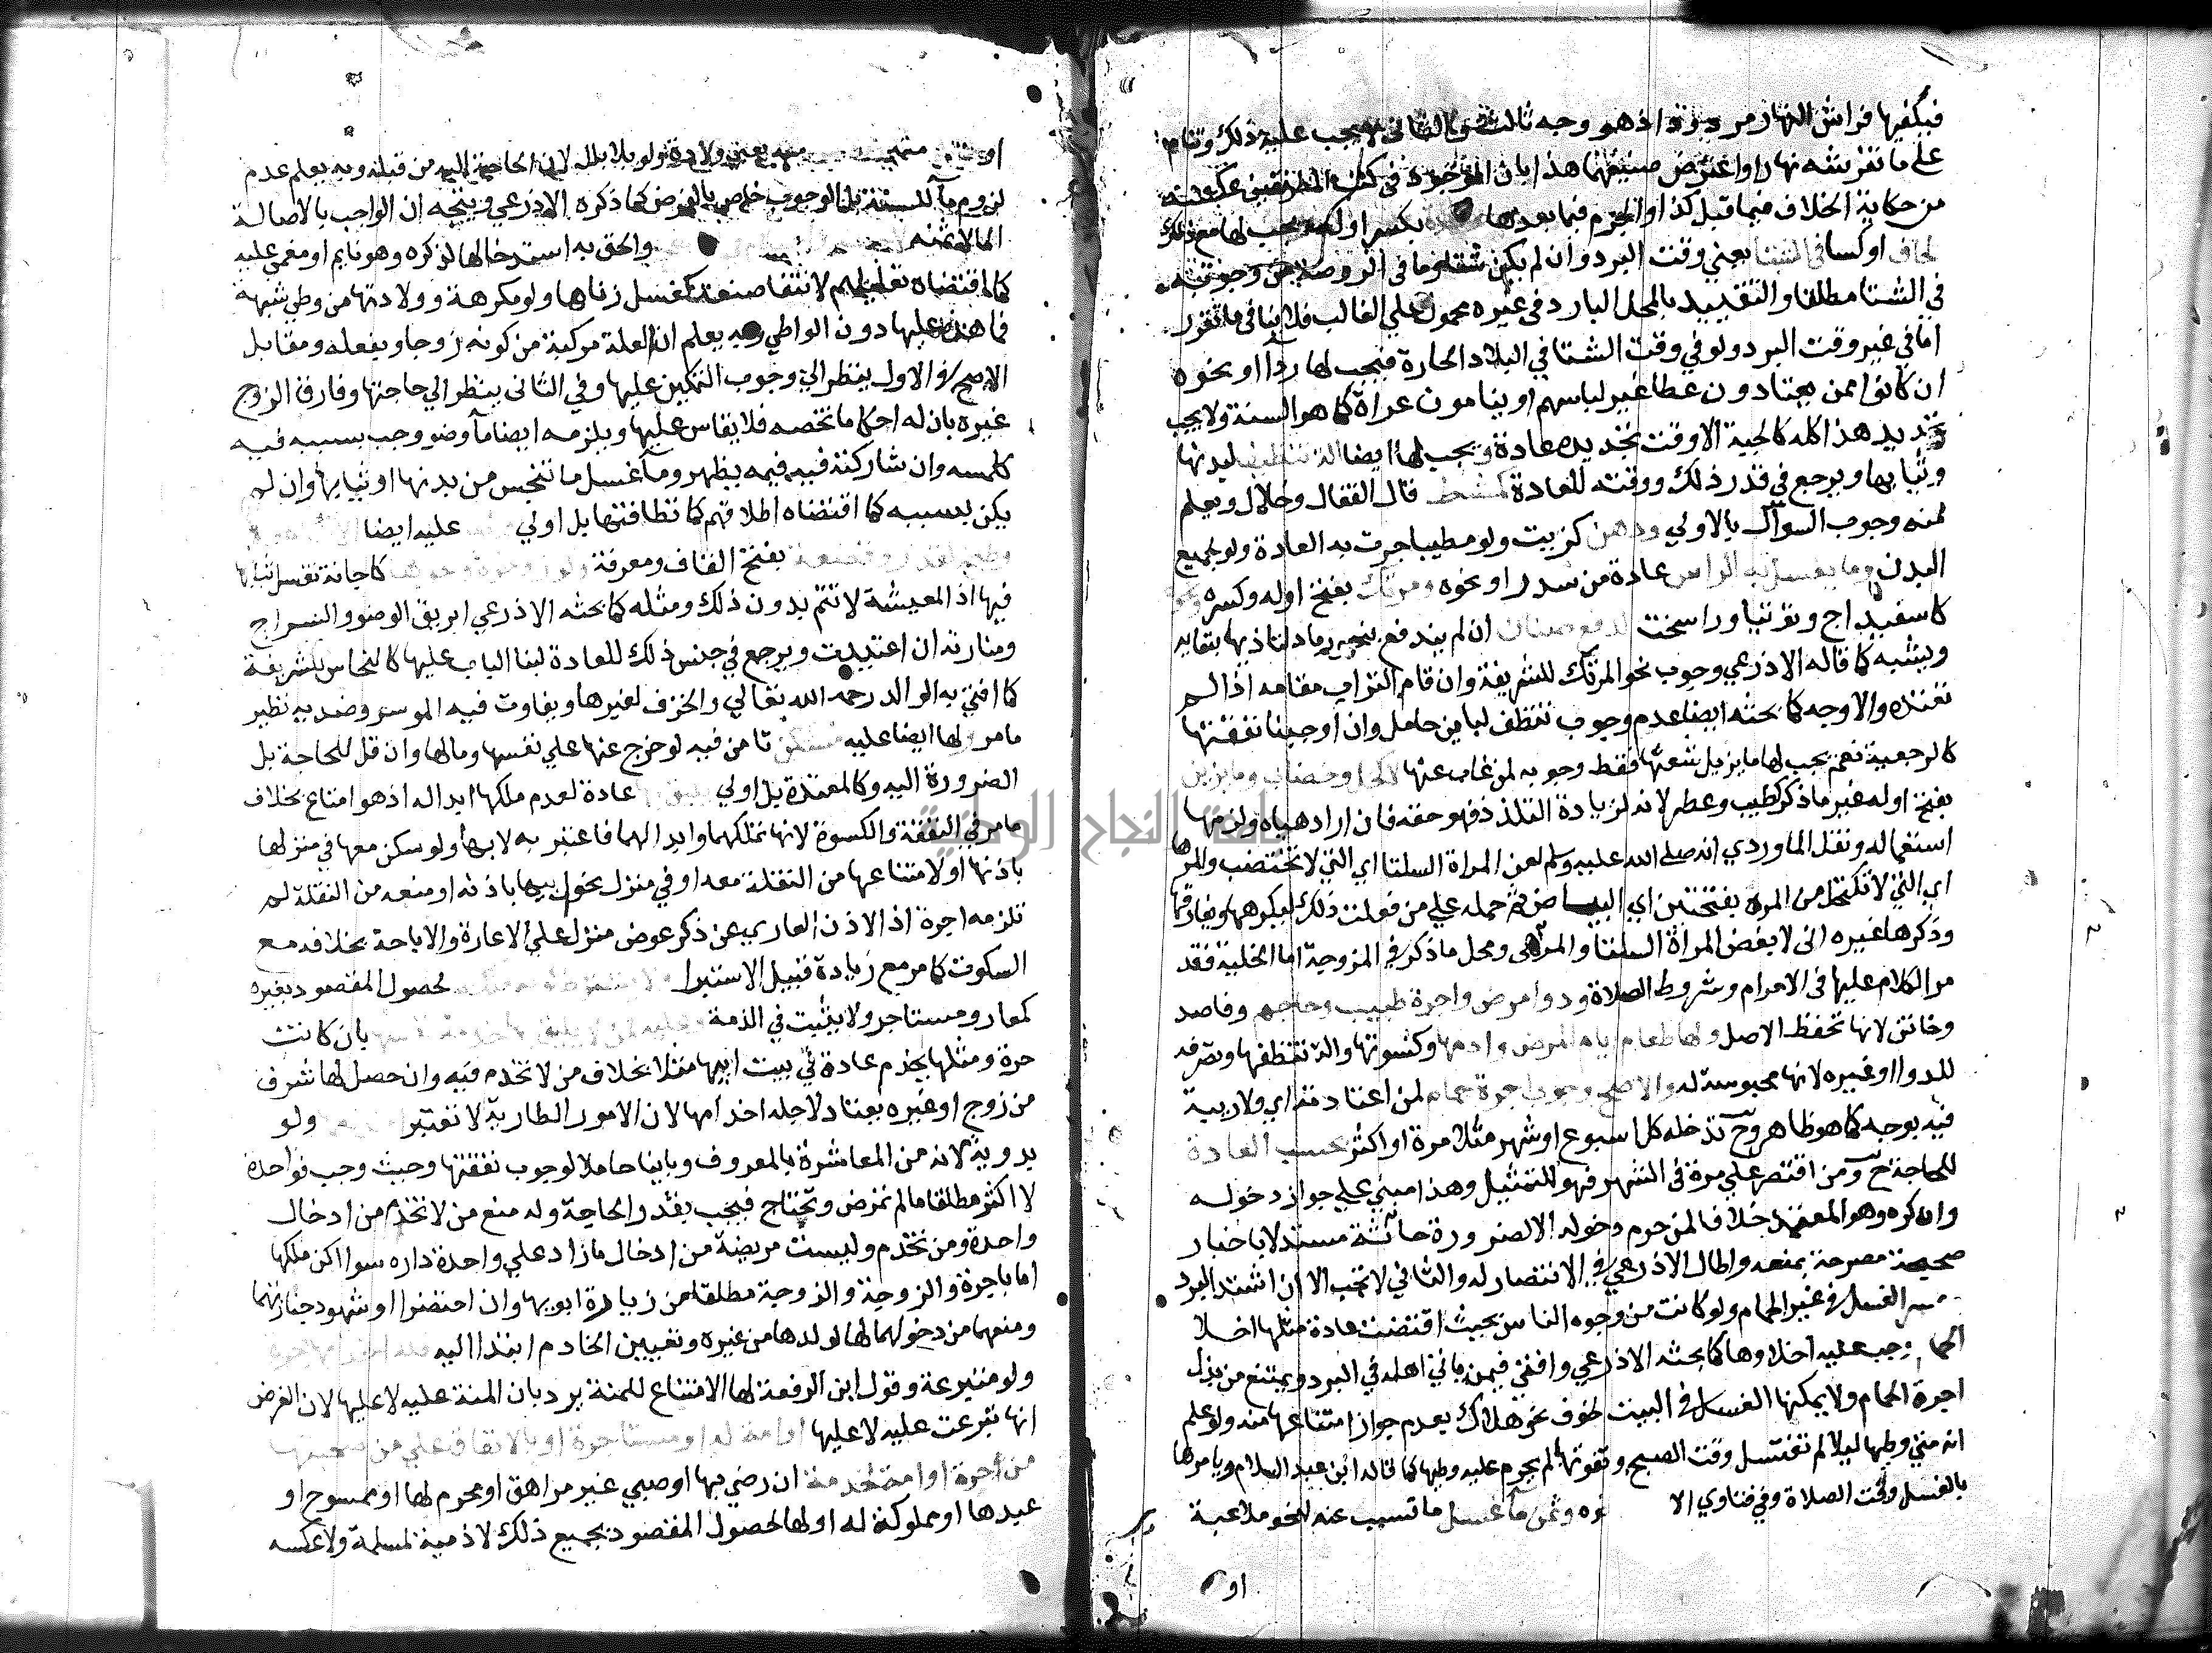 فيكفيها فراش النهار مردود اذ هو وجه ثالث والثاني لا يجب عليه ذلك وتنام
على ما تفرشه نهارا واعترض صنيعهما هذا بان الموجود في كتب الطريقين عكسه
من حكاية الخلاف فيما قبل كذا والجزم فيما بعدها بكسر اوله يجب لها مع ذلك
لحاف او كسا في الشتا يعني وقت البرد وان لم يكن شتا وما في الروضة من وجوبه
في الشتا مطلقا والتقييد بالمحل البارد في غيره محمول علي الغالب فلا ينافي ما تقرر
اما في غير وقت البرد ولو في وقت الشتا في البلاد الحارة فيجب لها ردا او نحوه
ان كانوا ممن يعتاد دون غطا غير لباسهم او ينامون عراة كما هو السنة ولا يجب
تجديد هذا كله كالجبة الا وقت تجديده عادة ويجب لها ايضا الة تنظيف لبدنها
وثيابها ويرجع في قدر ذلك ووقته للعادة كمشط قال القفال وخلال ويعلم
منه وجوب السواك بالاولي ودهن كزيت ولو مطيبا جرت به العادة ولو لجميع
البدن وما يغسل به الراس عادة من سدر او نحوه ومرتك بفتح اوله وكسره
كاسفيداج وتوتيا وراسخت لدفع صنان ان لم يندفع بنحو رماد لتاذيها ببقايه
ويشبه كما قاله الاذرعي وجوب نحو المرتك للشريفة وان قام التراب مقامه اذا لم
تعتده والاوجه كما بحثه ايضا عدم وجوب تنظف لباين حامل وان اوجبنا نفقتها
كالرجعية نعم يجب لها ما يزيل شعثها فقط وجوبه لمن غاب عنها لا كحل وخضاب وما يزين
بفتح اوله غير ما ذكر كطيب وعطر لانه لزيادة التلذذ فهو حقه فان اراده هياه ولزمها
استعماله ونقل الماوردي انه صلي الله عليه وسلم لعن المراة السلتا اي التي لا تختضب والمرها
اي التي لا تكتحل من المره بفتحتين اي البياض ثم حمله علي من فعلت ذلك ليكرهها ويفارقها
وذكرها غيره اني لا بغض المراة السلتا والمرهى ومحل ما ذكر في المزوجة اما الخلية فقد
مر الكلام عليها في الاحرام وشروط الصلاة ودوا مرض واجرة طبيب وحاجم وفاصد
وخاتن لانها تحفظ الاصل ولها طعام ايام المرض وادمها وكسوتها والة تنظفها وتصرفه
للدوا او غيره لانها محبوسة له والاصح وجوب اجرة حمام لمن اعتادته اي ولا ريبة
فيه بوجه كما هو ظاهر وح تدخله كل اسبوع او شهر مثلا مرة او اكثر بحسب العادة
للحاجة ح ومن اقتصر علي مرة في الشهر فهو للتمثيل وهذا مبني علي جواز دخوله
وان كره وهو المعتمد خلافا لمن حرم دخوله الا لضرورة حاثة مستدلا باخبار
صحيحة مصرحة بمنعه واطال الاذرعي في الانتصار له والثاني لا تجب الا ان اشتد البرد
الغسل في غير الحمام ولو كانت من وجوه الناس بحيث اقتضت عادة مثلها اخلا
الحمام وجب عليه اخلاوها كما بحثه الاذرعي وافتي فيمن ياتي اهله في البرد ويمتنع من بذل
اجرة الحمام ولا يمكنها الغسل في البيت لخوف نحو هلاك بعدم جواز امتناعها منه ولو علم
انه متي وطيها ليلا لم تغتسل وقت الصبح وتفوتها لم يحرم عليه وطيها كما قاله ابن عبد السلام ويامرها
بالغسل وقت الصلاة وفي فتاوي الا وثمن ما غسل ما تسبب عنه لنحو ملاعبة
او
يعني ولادة ولو بلا بلل لان الحاجة اليه من قبله وبه يعلم عدم
لزوم ما للسنة بل الوجوب خاص بالفرض كما ذكره الاذرعي ويتجه ان الواجب بالاصالة
الما لا ثمنه والحق به استدخالها لذكره وهو نايم او مغمي عليه
كما اقتضاه تعليلهم لانتفا صنعه كغسل زناها ولو مكرهة وولادتها من وطي شبهة
فماء هذه عليها دون الواطي وبه يعلم ان العلة مركبة من كونه زوجا وبفعله ومقابل
الاصح في الاول ينظر الي وجوب التمكين عليها وفي الثاني ينظر الي حاجتها وفارق الزوج
غيره بان له احكاما تخصه فلا يقاس عليها ويلزمه ايضا ما وضو وجب بسببه فيه
كلمسه وان شاركته فيه فيما يظهر وما غسل ما تنجس من بدنها او ثيابها وان لم
يكن بسببه كما اقتضاه اطلاقهم كما نظافتها بل اولي عليه ايضا
بفتح القاف ومغرفة كاجانة تغسل ثيابها
فيها اذ المعيشة لا تتم بدون ذلك ومثله كما بحثه الاذرعي ابريق الوضو والسراج
ومنارته ان اعتيدت ويرجع في جنس ذلك للعادة لبنا الباب عليها كالنحاس للشريفة
كما افتي به الوالد رحمه الله تعالي والخزف لغيرها ويفاوت فيه الموسر وضديه نظير
ما مر ولها ايضا عليه مسكن تامن فيه لو خرج عنها علي نفسها ومالها وان قل للحاجة بل
الضرورة اليه وكالمعتدة بل اولي عادة لعدم ملكها ابداله اذ هو امتاع بخلاف
ما مر في النفقة والكسوة لانها تملكهما وابدالهما فاعتبر به لا بها ولو سكن معها في منزلها
باذنها او لامتناعها من النقلة معه او في منزل نحو ابيها باذنه او منعه من النقلة لم
تلزمه اجرة اذ الاذن العاري عن ذكر عوض منزل علي الاعارة والاباحة بخلافه مع
السكوت كما مر مع زيادة قبيل الاستبرا ولا يشترط كونه ملكه لحصول المقصود بغيره
كمعار ومستاجر ولا يثبت في الذمة وعليه لمن لا يليق بها خدمة نفسها بان كانت
حرة ومثلها يخدم عادة في بيت ابيها مثلا بخلاف من لا تخدم فيه وان حصل لها شرف
من زوج او غيره يعتاد لاجله اخدامها لان الامور الطارية لا تعتبر ولو
بدوية لانه من المعاشرة بالمعروف وباينا حاملا لوجوب نفقتها وحيث وجب فواحدة
لا اكثر مطلقا ما لم تمرض وتحتاج فيجب بقدر الحاجة وله منع من لا تخدم من ادخال
واحدة ومن تخدم وليست مريضة من ادخال ما زاد علي واحدة داره سوا اكن ملكها
اما باجرة والزوجية والزوجية مطلقا من زيارة ابويها وان احتضرا او شهود جنازتهما
ومنعهما من دخولهما لها لولدها من غيره وتعيين الخادم ابتدا اليه
ولو متبرعة وقول ابن الرفعة لها الامتناع للمنة يرد بان المنة عليه لا عليها لان الفرض
انها تبرعت عليه لا عليها او امة له او مستاجرة او بالانفاق علي من صحبتها
من حرة او امة لخدمة ان رضي بها او صبي غير مراهق او محرم لها او ممسوح او
عبدها او مملوكة له او لها لحصول المقصود بجميع ذلك لا ذمية لمسلمة ولا عكسه
جامعة النجاح الوطنية